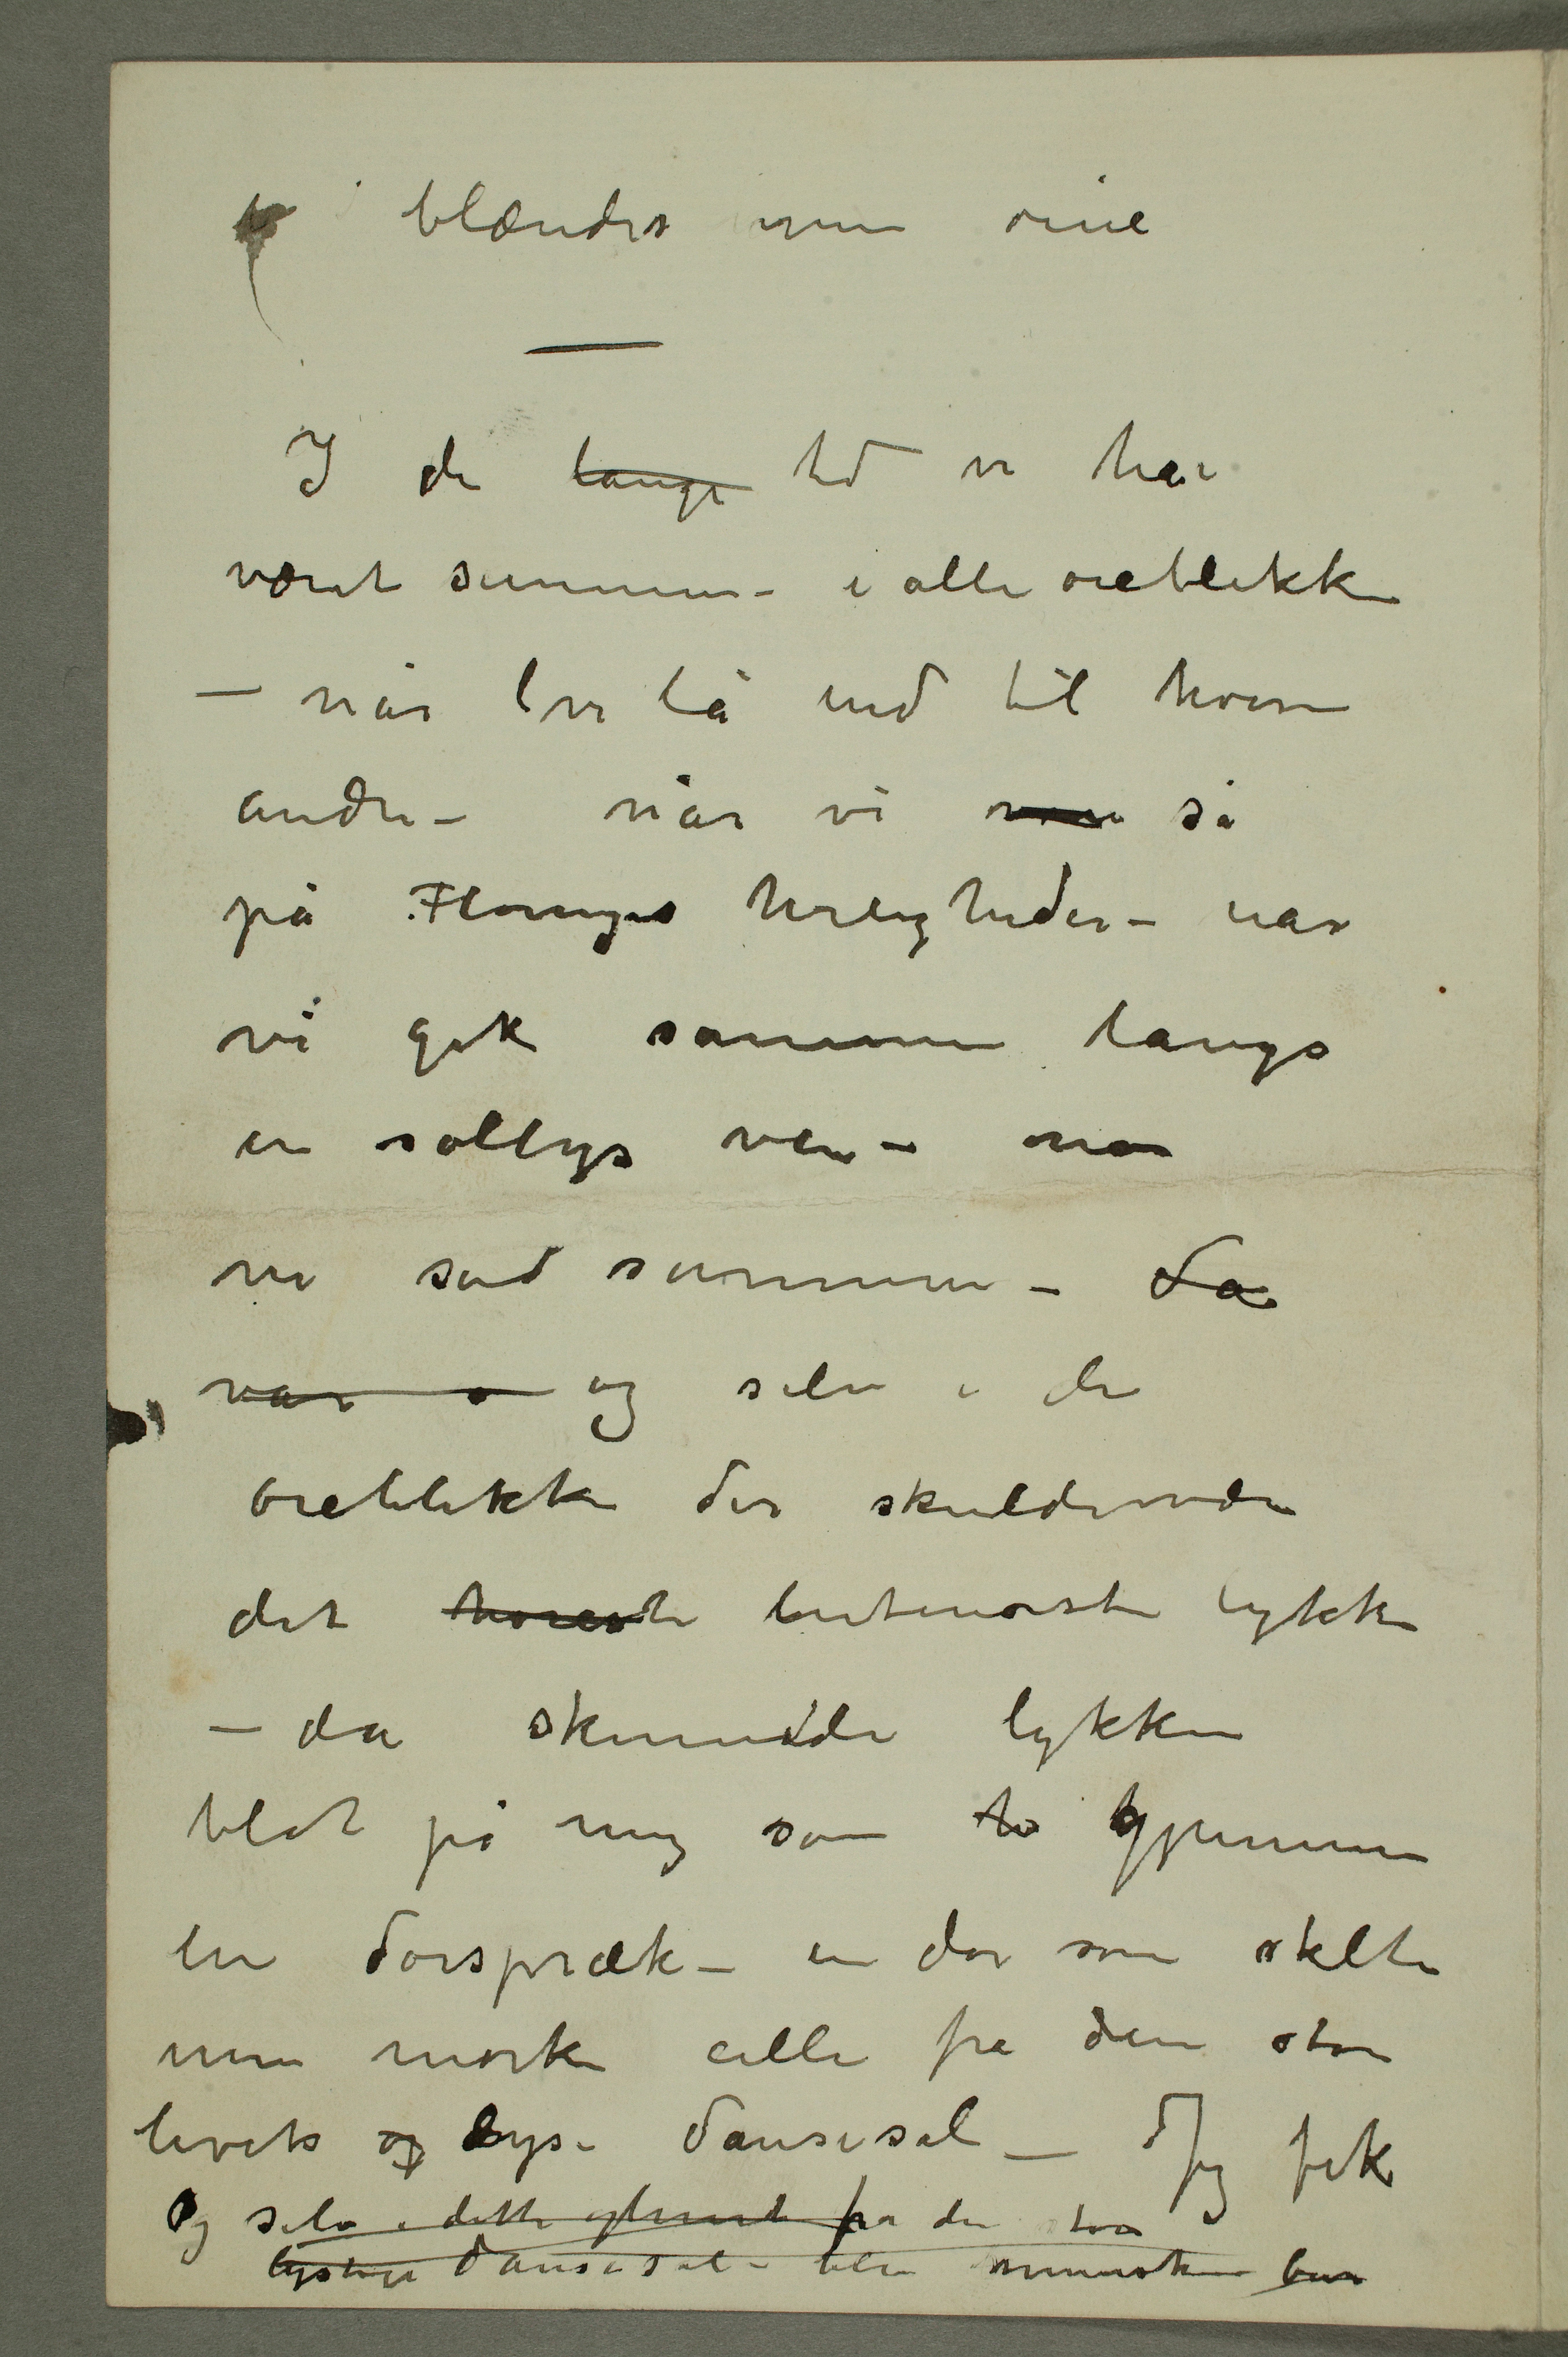 blændes mine øine
—
I de lange tid vi har
været sammen – i alle øieblikke
– når vi lå ind til hver
andre – når vi så
på Florenz herligheder – når
vi gik sammen langs
en sollys vei – når
vi sad sammen – da
var og selv i de
øieblikke der skulde være
det høieste intenseste lykke
– da skinnede lykken
blot på mig som gjennem
en dørspræk – en dør som skilte
min mørke celle fra den store
livets og lyse dansesal – Jeg fik
Og selv i dette glimt fra den store
lystige dansesal – blev mennesker